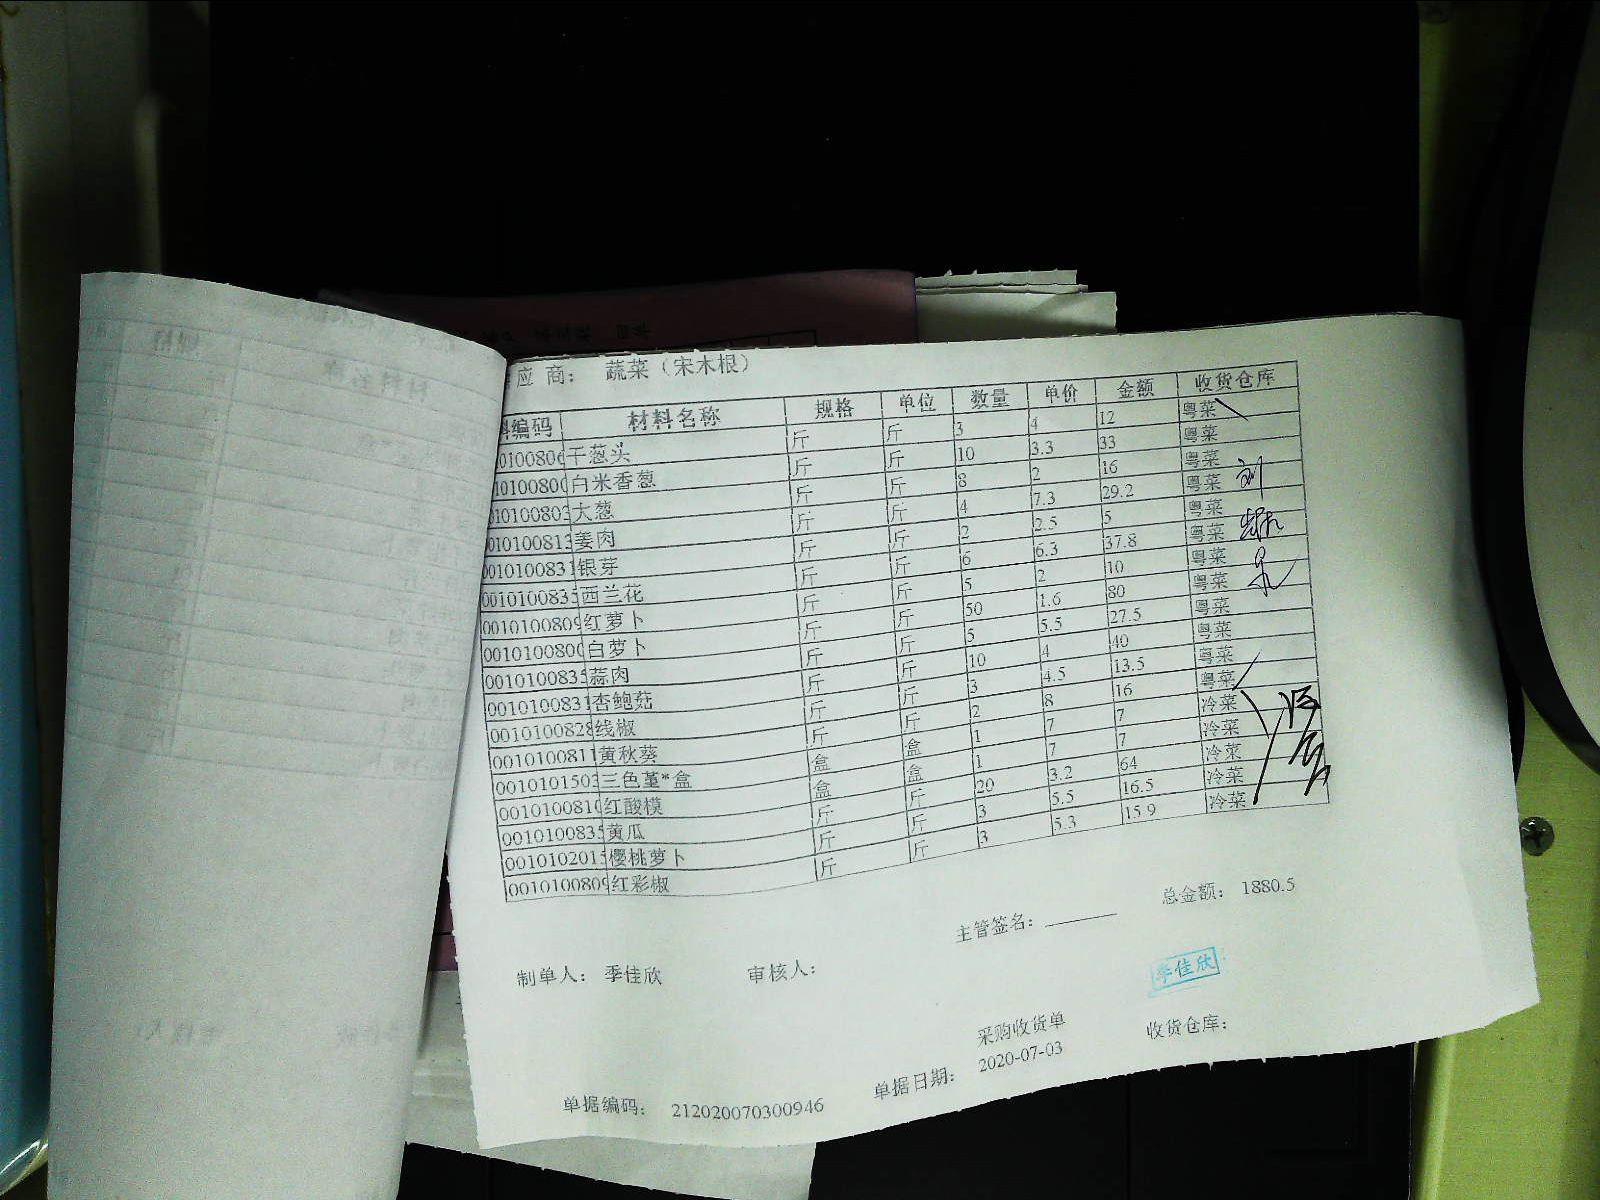 应 商： 蔬菜（宋木根）
编码 材料名称 规格 单位 数量 单价 金额 收货仓库
01010080 干葱头 斤 斤 3 4 12 粤菜
01010080 白米香葱 斤 斤 10 3.3 33 粤菜
01010080 大葱 斤 斤 8 2 16 粤菜
01010081 姜肉 斤 斤 4 7.3 29.2 粤菜
001010083 银芽 斤 斤 2 2.5 5 粤菜
001010083 西兰花 斤 斤 6 6.3 37.8 粤菜
001010080 红萝卜 斤 斤 5 2 10 粤菜
001010080 白萝卜 斤 斤 50 1.6 80 粤菜
001010083 蒜肉 斤 斤 5 5.5 27.5 粤菜
001010083 杏鲍菇 斤 斤 10 4 40 粤菜
001010082 线椒 斤 斤 3 4.5 13.5 粤菜
001010081 黄秋葵 斤 斤 2 8 16 粤菜
001010150 三色堇*盒 盒 盒 1 7 7 冷菜
001010081 红酸模 盒 盒 1 7 7 冷菜
001010083 黄瓜 斤 斤 20 3.2 64 冷菜
001010201 樱桃萝卜 斤 斤 3 5.5 16.5 冷菜
001010080 红彩椒 斤 斤 3 5.3 15.9 冷菜
总金额： 1880.5
主管签名：
制单人： 季佳欣 审核人：
季佳欣
采购收货单 收货仓库：
单据编码： 212020070300946 单据日期： 2020-07-03